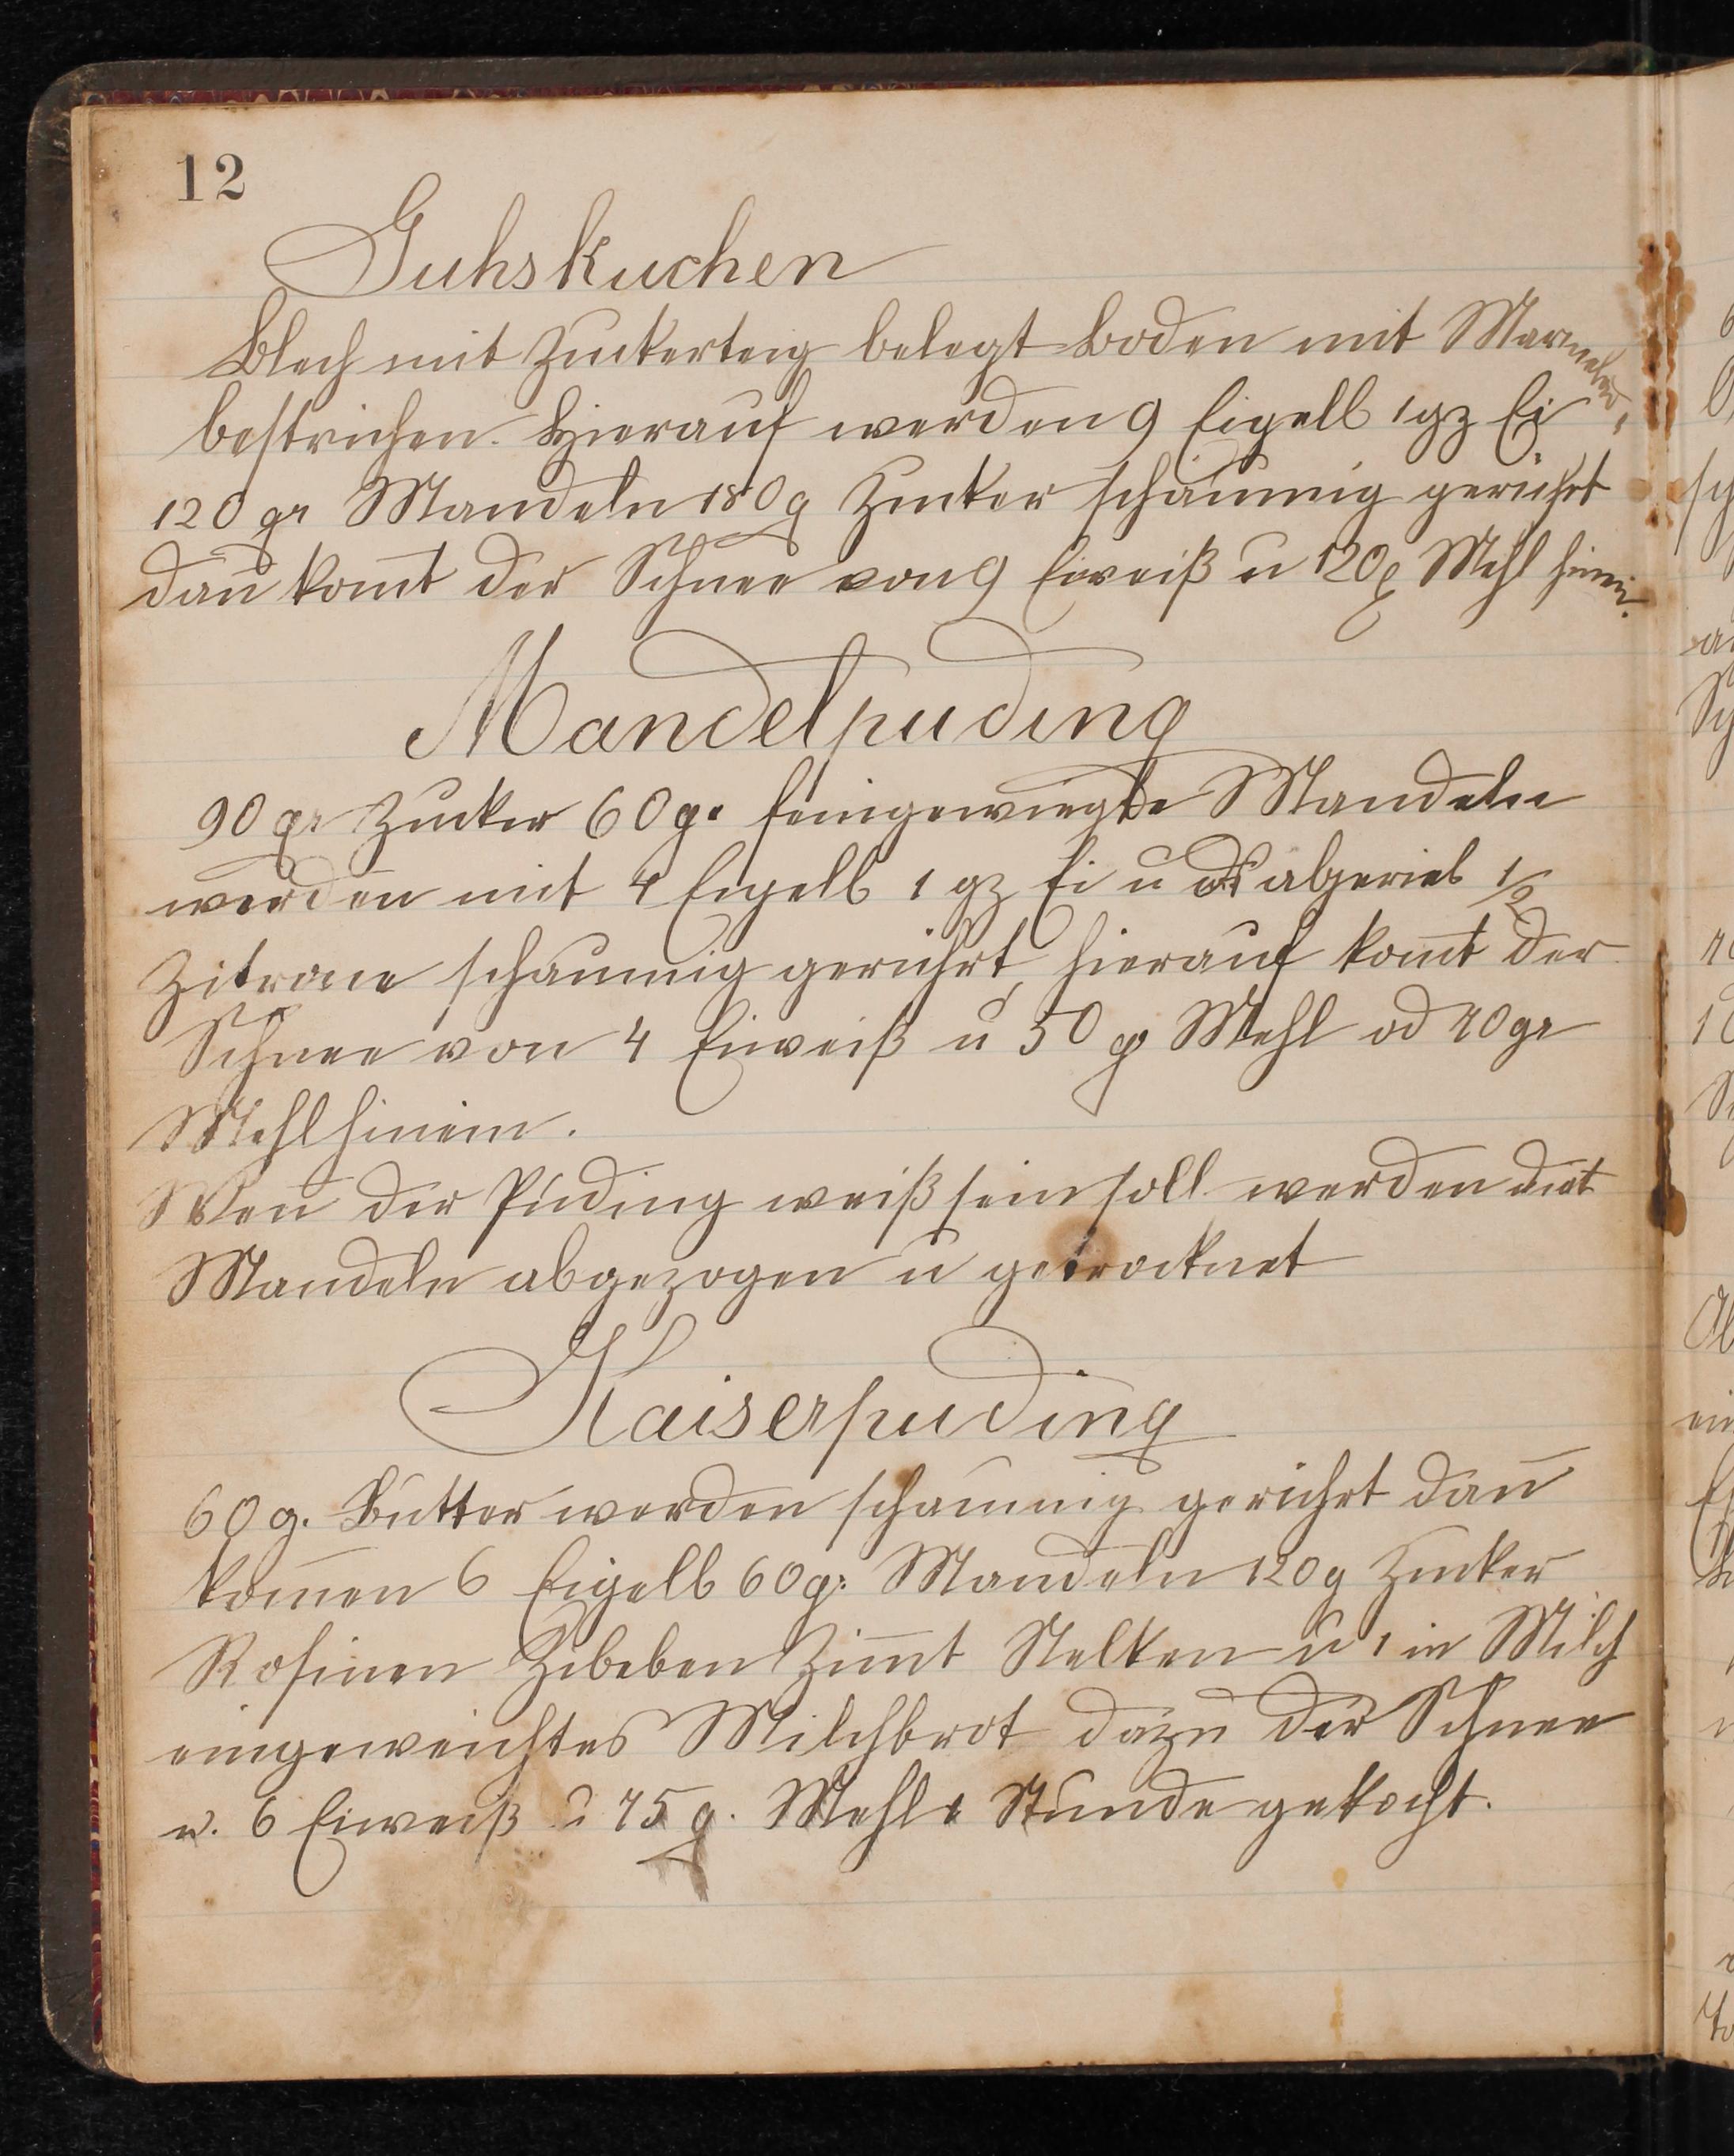 12
Guhskuchen
Blech mit Zuckerteig belegt Boden mit Marmelad
bestrichen. Hierauf werden 9 Eigelb 1 gz Ei
120 gr Mandeln 180 g Zucker schaumig gerührt
dan̄ kom̄t der Schnee von 9 Eiweiß u 120 g Mehl hinein.
Mandelpuding
90 gr Zucker 60 gr feingewiegte Mandeln
werden mit 4 Eigelb 1 gz Ei u abgerieb 1/2
Zitrone schaumig gerührt, hierauf kom̄t der
Schnee von 4 Eiweiß u 50 g Mehl od 40 gr
Mehl hinein.
Wen̄ der Puding weiß sein soll werden
Mandeln abgezogen u getrocknet
Kaiserpuding
60 g. Butter werden schaumig gerührt dan̄
kom̄en 6 Eigelb 60 gr Mandeln 120 g Zucker
Rosinen Zibeben Zim̄t Nelken u 1 in Milch
eingeweichtes Milchbrot dazu der Schnee
v. 6 Eiweiß u 75 g. Mehl Stunde gekocht.